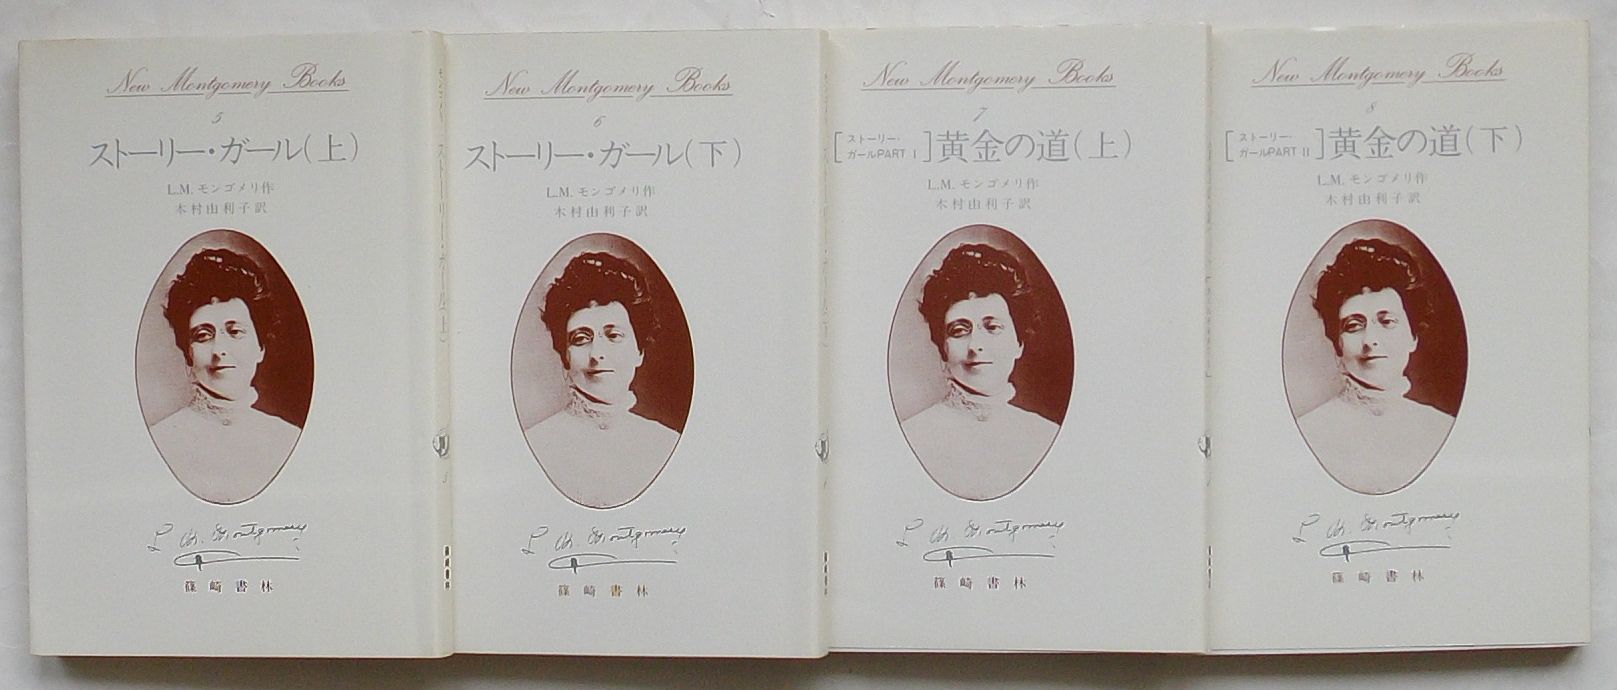 New Montgomery Books
5
ストーリー・ガール(上)
L.M.モンゴメリ作
木村由利子訳
L. M. Montgomery
篠崎書林
New Montgomery Books
6
ストーリー・ガール(下)
L.M.モンゴメリ作
木村由利子訳
L. M. Montgomery
篠崎書林
New Montgomery Books
7
[ストーリー・ガールPART I]黄金の道(上)
L.M.モンゴメリ作
木村由利子訳
L. M. Montgomery
篠崎書林
New Montgomery Books
8
[ストーリー・ガールPART II]黄金の道(下)
L.M.モンゴメリ作
木村由利子訳
L. M. Montgomery
篠崎書林